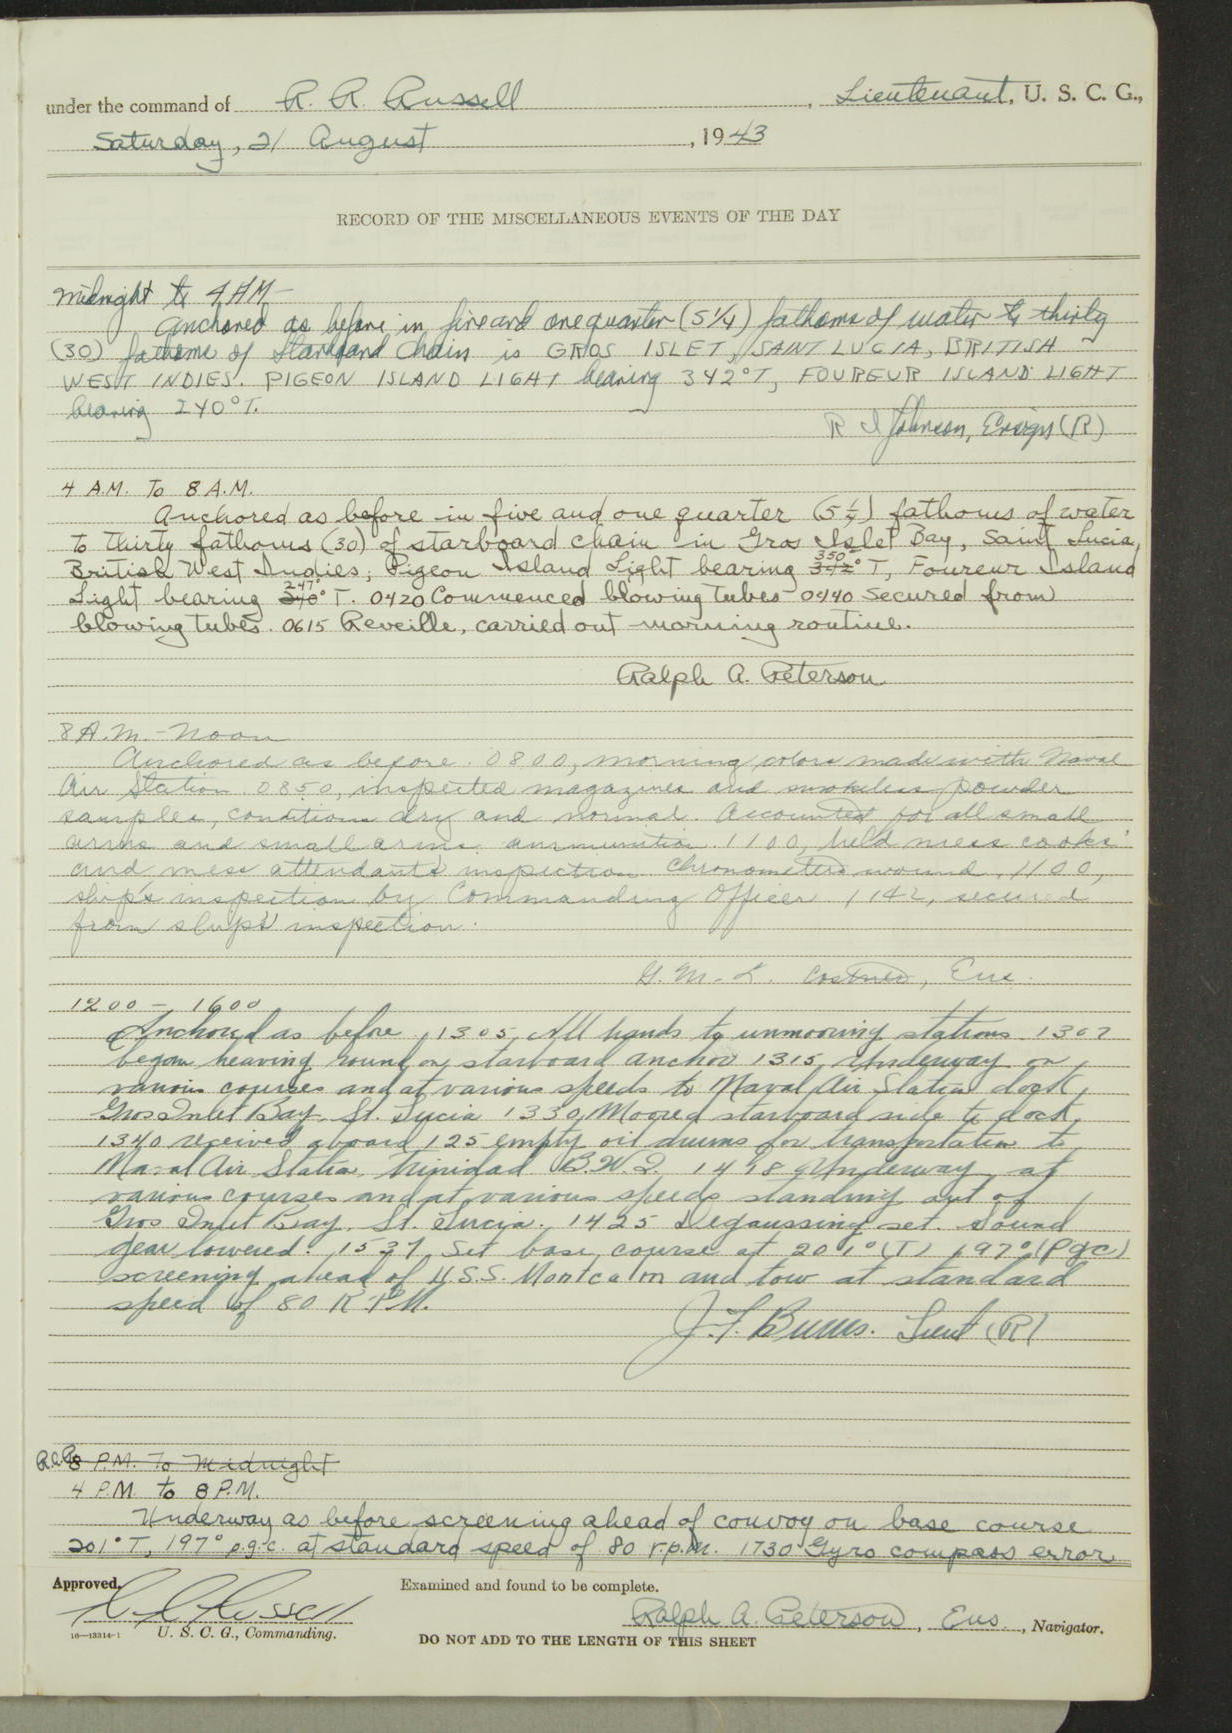 under the command of R. R. Russell, Lieutenant, U. S. C. G.,
Saturday, 21 August, 1943
RECORD OF THE MISCELLANEOUS EVENTS OF THE DAY
Midnight to 4 AM
Anchored as before in five and one quarter (5 1/4) fathoms of water to thirty
(30) fathoms of starboard chain is GROS ISLET, SAINT LUCIA, BRITISH
WEST INDIES. PIGEON ISLAND LIGHT bearing 342°T, FOUREUR ISLAND LIGHT
bearing 240°T.
R I Johnson, Ensign (R)
4 A.M. To 8 A.M.
Anchored as before in five and one quarter (5 1/4) fathoms of water
to thirty fathoms (30) of starboard chain in Gros Islet Bay, Saint Lucia,
British West Indies; Pigeon Island Light bearing 350° T, Foureur Island
Light bearing 247° T. 0420 Commenced blowing tubes 0440 Secured from
blowing tubes. 0615 Reveille, carried out morning routine.
Ralph A. Peterson
8 A.M. - Noon
Anchored as before. 0800, morning colors made with Naval
Air Station. 0850, inspected magazines and smokeless powder
samples, conditions dry and normal. Accounted for all small
arms and small arms ammunition. 1100, held mess cooks'
and mess attendants inspection. Chronometers wound. 1100,
ship's inspection by Commanding Officer 1142, secured
from ships' inspection.
G. M. L. Costner, Ens.
1200 - 1600
Anchored as before. 1305, All hands to unmooring stations 1307
began heaving round on starboard anchor 1315, Underway on
various courses and at various speeds to Naval Air Station dock,
Gros Inlet Bay, St. Lucia 1330, Moored starboard side to dock,
1340 received aboard 125 empty oil drums for transportation to
Naval Air Station, Trinidad B.W.I. 1418 Underway at
various courses and at various speeds standing out of
Gros Inlet Bay, St. Lucia. 1425 Degaussing set. Sound
gear lowered. 1537, Set base course at 201° (T) 197° (pgc)
screening ahead of U.S.S. Montcalm and tow at standard
speed of 80 R.P.M.
J. F. Burns. Lieut (R)
8 P.M. To Midnight
4 P.M. to 8 P.M.
Underway as before screening ahead of convoy on base course
201° T, 197° p.g.c. at standard speed of 80 r.p.m. 1730 Gyro compass error
Approved, Examined and found to be complete.
R R Russell Ralph A. Peterson, Ens., Navigator.
16—13314-1 U. S. C. G., Commanding.
DO NOT ADD TO THE LENGTH OF THIS SHEET